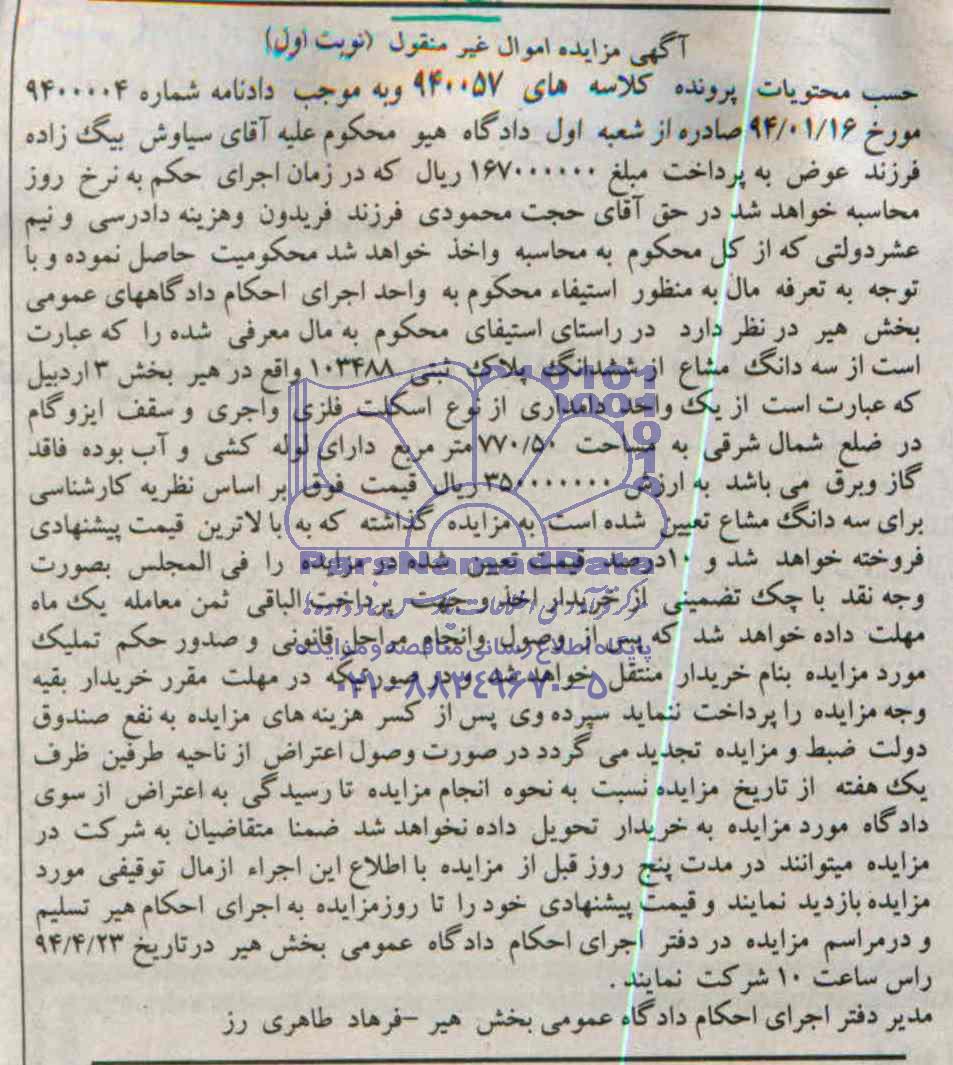 آگهی مزایده اموال غیر منقول (نوبت اول)
حسب محتویات پرونده کلاسه های ۹۴۰۰۵۷ وبه موجب دادنامه شماره ۹۴۰۰۰۰۴
مورخ ۹۴/۰۱/۱۶ صادره از شعبه اول دادگاه هیو محکوم علیه آقای سیاوش بیگ زاده
فرزند عوض به پرداخت مبلغ ۱۶۷۰۰۰۰۰۰ ریال که در زمان اجرای حکم به نرخ روز
محاسبه خواهد شد در حق آقای حجت محمودی فرزند فریدون وهزینه دادرسی و نیم
عشردولتی که از کل محکوم به محاسبه واخذ خواهد شد محکومیت حاصل نموده و با
توجه به تعرفه مال به منظور استیفاء محکوم به واحد اجرای احکام دادگاههای عمومی
بخش هیر در نظر دارد در راستای استیفای محکوم به مال معرفی شده را که عبارت
است از سه دانگ مشاع از ششدانگ پلاک ثبتی ۱۰۳۴۸۸ واقع در هیر بخش ۳ اردبیل
که عبارت است از یک واحد دامداری از نوع اسکلت فلزی واجری و سقف ایزوگام
در ضلع شمال شرقی به مساحت ۷۷۰/۵۰ متر مربع دارای لوله کشی و آب بوده فاقد
گاز وبرق می باشد به ارزش ۳۵۰۰۰۰۰۰۰ ریال قیمت فوق بر اساس نظریه کارشناسی
برای سه دانگ مشاع تعیین شده است به مزایده گذاشته که به بالاترین قیمت پیشنهادی
فروخته خواهد شد و ۱۰درصد قیمت تعیین شده در مزایده را فی المجلس بصورت
وجه نقد با چک تضمینی از خریدار اخذ و جهت پرداخت الباقی ثمن معامله یک ماه
مهلت داده خواهد شد که پس از وصول وانجام مراحل قانونی و صدور حکم تملیک
مورد مزایده بنام خریدار منتقل خواهد شد و در صورتیکه در مهلت مقرر خریدار بقیه
وجه مزایده را پرداخت ننماید سپرده وی پس از کسر هزینه های مزایده به نفع صندوق
دولت ضبط و مزایده تجدید می گردد در صورت وصول اعتراض از ناحیه طرفین ظرف
یک هفته از تاریخ مزایده نسبت به نحوه انجام مزایده تا رسیدگی به اعتراض از سوی
دادگاه مورد مزایده به خریدار تحویل داده نخواهد شد ضمنا متقاضیان به شرکت در
مزایده میتوانند در مدت پنج روز قبل از مزایده با اطلاع این اجراء ازمال توقیفی مورد
مزایده بازدید نمایند و قیمت پیشنهادی خود را تا روزمزایده به اجرای احکام هیر تسلیم
و درمراسم مزایده در دفتر اجرای احکام دادگاه عمومی بخش هیر درتاریخ ۹۴/۴/۲۳
راس ساعت ۱۰ شرکت نمایند .
مدیر دفتر اجرای احکام دادگاه عمومی بخش هیر -فرهاد طاهری رز
ParsNamadData
پایگاه اطلاع رسانی مناقصه و مزایده
۰۲۱-۸۸۳۴۹۶۷۰-۵